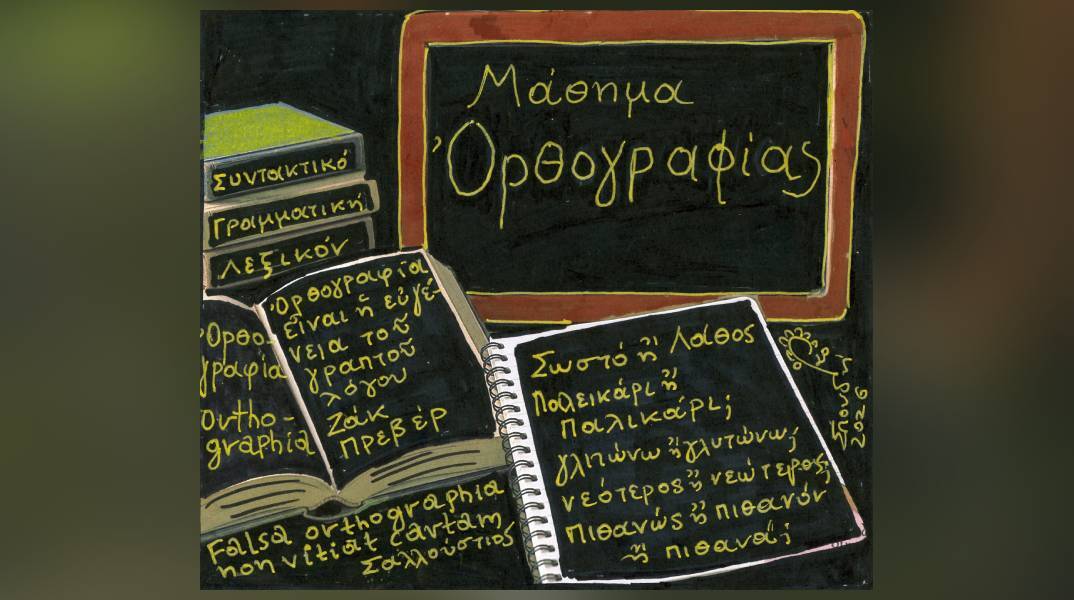 Μάθημα
Ὀρθογραφίας
Συντακτικό
Γραμματική
Λεξικόν
Ὀρθο-
γραφία
Ortho-
graphia
Ὀρθογραφία
εἶναι ἡ εὐγέ-
νεια τοῦ
γραπτοῦ
λόγου
Ζάκ
Πρεβέρ
Σωστό ἤ Λάθος
Παλεικάρι ἤ
παλικάρι;
γλιτώνω ἤ γλυτώνω;
νεότερος ἤ νεώτερος;
πιθανώς ἤ πιθανόν
ἤ πιθανά;
Falsa orthographia
non vitiat cartam
Σαλλούστιος
2026